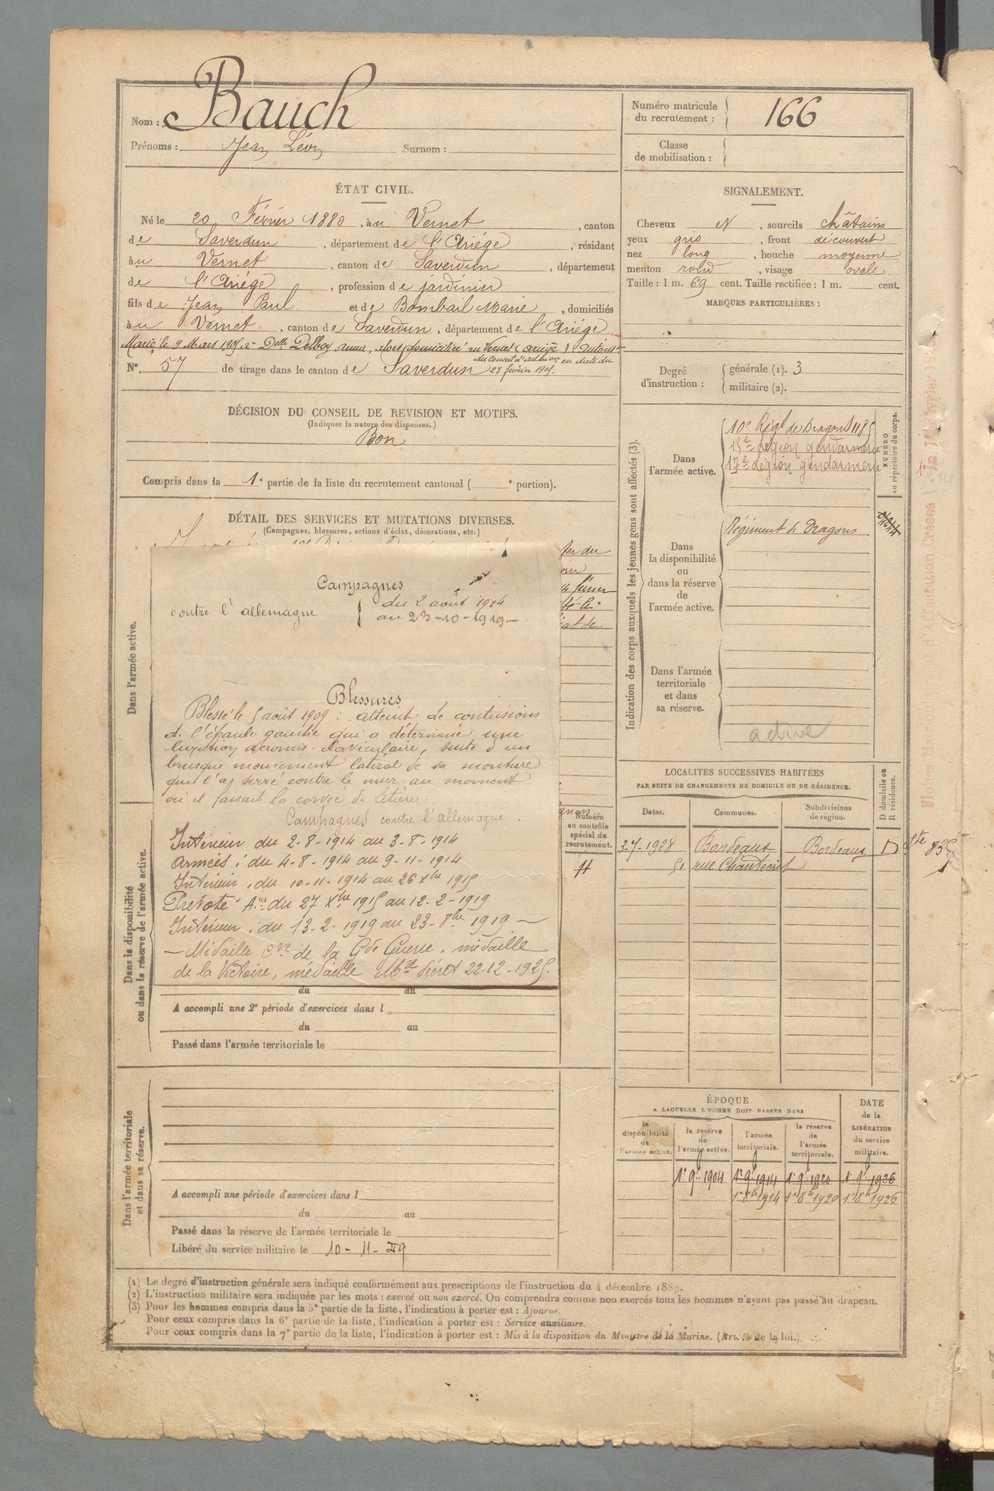 Nom : Bauch
Prénoms : Jean Léon Surnom :
Numéro matricule
du recrutement : 166
Classe
de mobilisation :
ÉTAT CIVIL.
Né le 20 Février 1880, à au Vernet, canton
de Saverdun, département de l'Ariége, résidant
à au Vernet, canton de Saverdun, département
de l'Ariége, profession de jardinier
fils de Jean Paul et de Bombail Marie, domiciliés
à au Vernet, canton de Saverdun, département de l'Ariége
Marié le 9 Mars 1905 à Delle Delboy Anna, alors domiciliée au Vernet (Ariège)
du Conseil d'admon en date du
28 février 1905.
N° 57 de tirage dans le canton de Saverdun
SIGNALEMENT.
Cheveux N, sourcils châtains
yeux gris, front découvert
nez long, bouche moyenne
menton rond, visage ovale
Taille : 1 m. 69 cent. Taille rectifiée : 1 m. cent.
MARQUES PARTICULIÈRES :
Degré
d'instruction :
générale (1). 3
militaire (2).
DÉCISION DU CONSEIL DE REVISION ET MOTIFS.
(Indiquer la nature des dispenses.)
Bon
Compris dans la 1e partie de la liste du recrutement cantonal ( e portion).
DÉTAIL DES SERVICES ET MUTATIONS DIVERSES.
(Campagnes, blessures, actions d'éclat, décorations, etc.)
Dans l'armée active.
Campagnes
contre l'allemagne
du 2 août 1914
au 23-10-1919
Blessures
Blessé le 5 août 1909 : atteint de contusions
de l'épaule gauche qui a déterminé une
luxation acromio-claviculaire, suite d'un
brusque mouvement latéral de sa monture
qui l'a serré contre le mur au moment
où il faisait la corvée de litière.
Campagnes contre l'allemagne.
Intérieur du 2-8-1914 au 3-8-1914
armées : du 4-8-1914 au 9-11-1914
Intérieur, du 10-11-1914 au 26 Xbre 1915
Prévôté Aées du 27 Xbre 1915 au 12-2-1919
Intérieur, du 13-2-1919 au 23-8bre 1919 —
— Médaille cve de la Gde Guerre, médaille
de la Victoire, médaille Mre décret 22-12-1925.
Dans la disponibilité
ou dans la réserve de l'armée active.
du au
A accompli une 2e période d'exercices dans l
du au
Passé dans l'armée territoriale le
Numéro
au contrôle
spécial du
recrutement.
Dans l'armée territoriale
et dans sa réserve.
A accompli une période d'exercices dans l
du au
Passé dans la réserve de l'armée territoriale le
Libéré du service militaire le 10-11-29
Indication des corps auxquels les jeunes gens sont affectés (3).
Dans
l'armée active.
10e Régt de Dragons 1185
15e Légion gendarmerie
17e Légion gendarmerie
NUMÉRO
au répertoire du corps.
Dans
la disponibilité
ou
dans la réserve
de
l'armée active.
Régiment de Dragons
Dans l'armée
territoriale
et dans
sa réserve.
active
LOCALITÉS SUCCESSIVES HABITÉES
PAR SUITE DE CHANGEMENTS DE DOMICILE OU DE RÉSIDENCE.
Dates. Communes. Subdivisions
de région. D domicile ou
R résidence.
3-7-1928 Bordeaux Bordeaux D
51 rue Chantecrit
ÉPOQUE
A LAQUELLE L'HOMME DOIT PASSER DANS
la
disponibilité
de
l'armée active.
la réserve
de
l'armée active.
l'armée
territoriale.
la réserve
de
l'armée
territoriale.
DATE
de la
LIBÉRATION
du service
militaire.
1er 9bre 1904 1er 9bre 1914 1er 9bre 1920 1er 9bre 1926
1er 8bre 1914 1er 8bre 1920 1er 8bre 1926
(1) Le degré d'instruction générale sera indiqué conformément aux prescriptions de l'instruction du 4 décembre 1889.
(2) L'instruction militaire sera indiquée par les mots : exercé ou non exercé. On comprendra comme non exercés tous les hommes n'ayant pas passé au drapeau.
(3) Pour les hommes compris dans la 5e partie de la liste, l'indication à porter est : Ajourné.
Pour ceux compris dans la 6e partie de la liste, l'indication à porter est : Service auxiliaire.
Pour ceux compris dans la 7e partie de la liste, l'indication à porter est : Mis à la disposition du Ministre de la Marine. (Art. de la loi.)